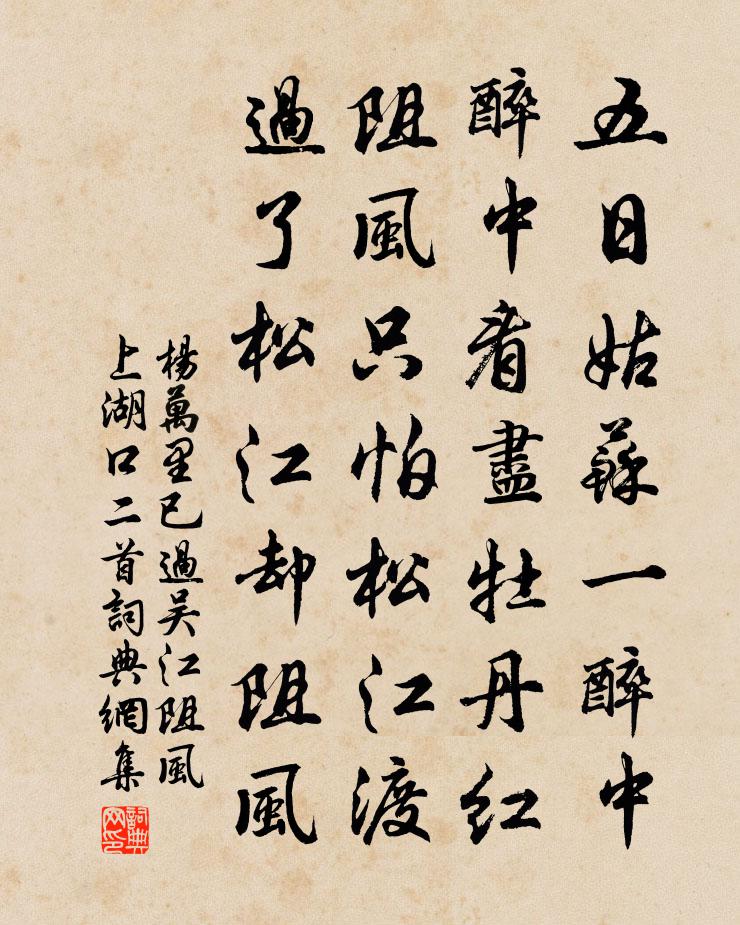 五日姑蘇一醉中
醉中看盡牡丹紅
阻風只怕松江渡
過了松江却阻風
楊萬里已過吴江阻風
上湖口二首詞典網集
詞典网印